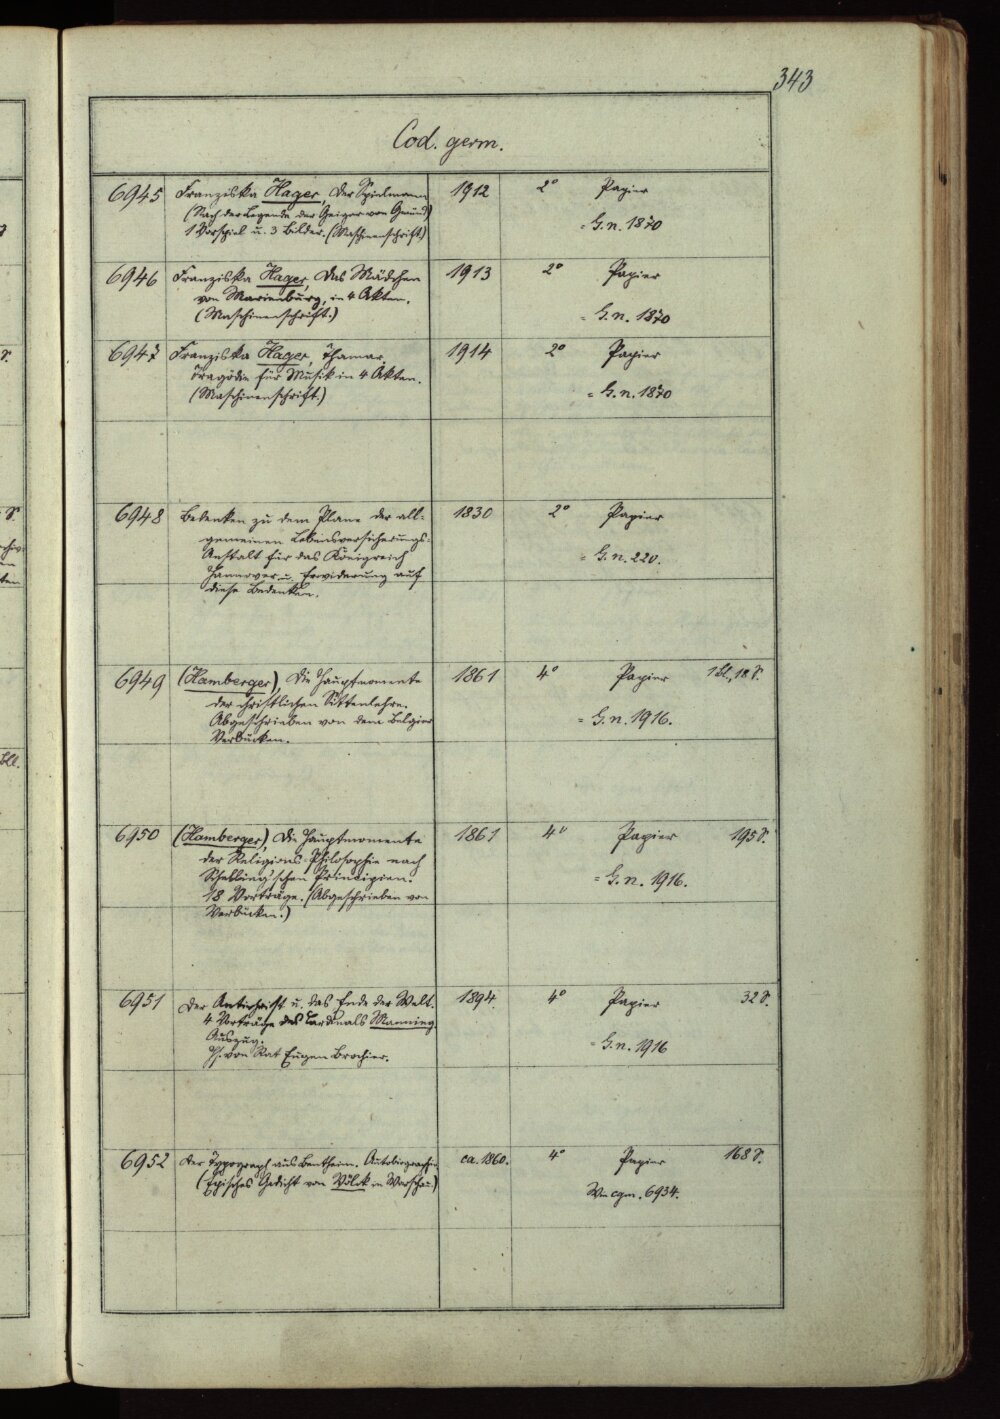 343
Cod. germ.
6945 Franziska Hager, Der Spielmann 1912 2° Papier
(Nach der Legende der Geiger von Gmünd)
1 Vorspiel u. 3 Bilder. (Maschinenschrift) = G. n. 1870
6946 Franziska Hager, Das Mädchen 1913 2° Papier
von Marienburg, in 4 Akten.
(Maschinenschrift.) = G. n. 1870
6947 Franziska Hager, Thamar, 1914 2° Papier
Tragödie für Musik in 4 Akten.
(Maschinenschrift.) = G. n. 1870
6948 Bedenken zu dem Plane der all- 1830 2° Papier
gemeinen Lebensversicherungs-
Anstalt für das Königreich = G. n. 220.
Hannover u. Erwiderung auf
diese Bedenken.
6949 (Hamberger), Die Hauptmomente 1861 4° Papier 1 Bl., 18 S.
der christlichen Sittenlehre.
Abgeschrieben von dem Belgier = G. n. 1916.
Verbücken.
6950 (Hamberger), Die Hauptmomente 1861 4° Papier 195 S.
der Religions-Philosophie nach
Schelling'schen Principien. = G. n. 1916.
18 Vorträge. (Abgeschrieben von
Verbücken.)
6951 Der Antichrist u. das Ende der Welt. 1894. 4° Papier 32 S.
4 Vorträge des Cardinals Manning.
Auszug. = G. n. 1916
Hs. von Rat Eugen Brochier.
6952 Der Typograph aus Bentheim. Autobiographie. ca. 1860. 4° Papier 168 S.
(Episches Gedicht von Wülck in Warschau) Wie cgm. 6934.